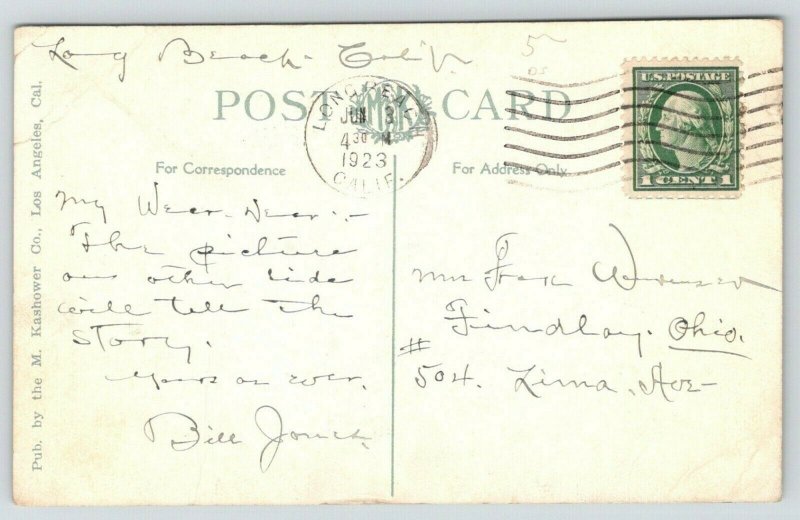 Long Beach - Calif.
5
POST CARD
LONG BEACH
JUN 3
4 30 M
1923
CALIF.
U.S. POSTAGE
1 CENT 1
For Correspondence
For Address Only
My Dear :-
The picture
on other side
will tell the
story.
Yours as ever,
Bill Jones
Findlay. Ohio.
# 504. Lima. Ave-
Pub. by the M. Kashower Co., Los Angeles, Cal.